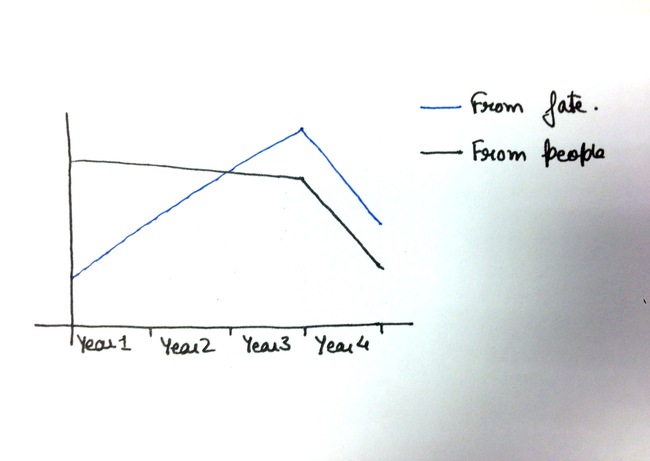 From fate.
From people
Year1 Year2 Year3 Year4